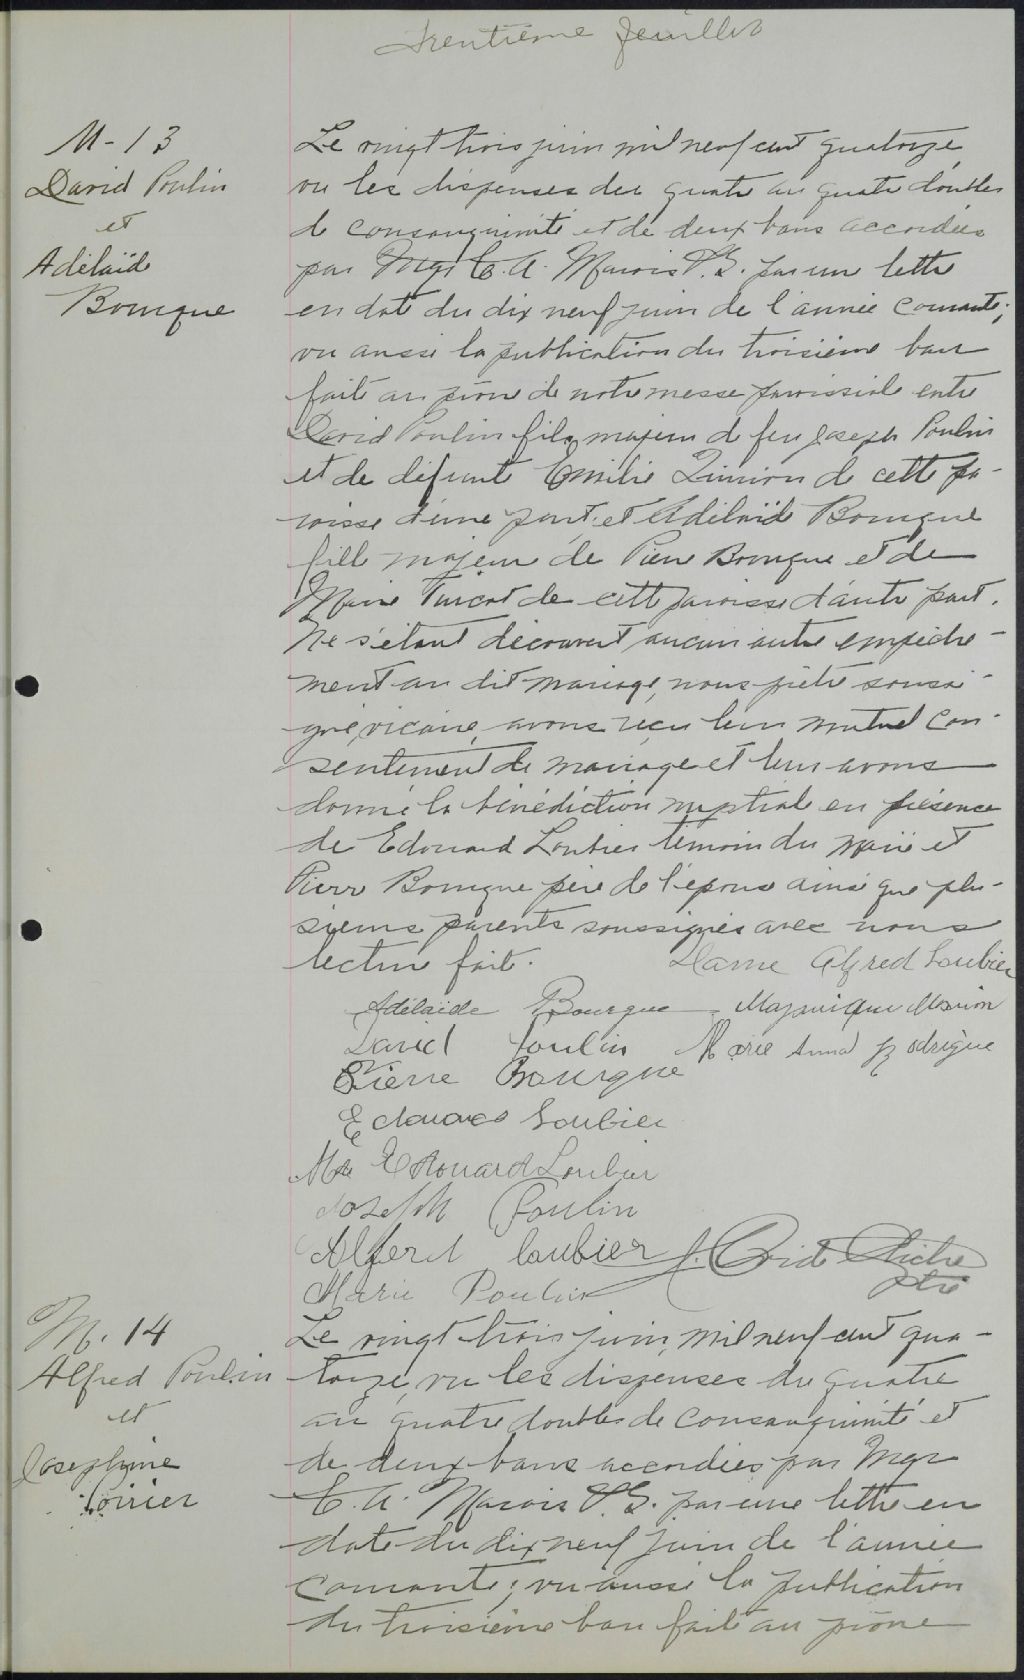 Trentième feuillet
M-13
David Poulin
et
Adélaïde
Bourque
Le vingt trois juin mil neuf cent quatorze
vu les dispenses du quatre au quatre doubles
de consanguinité et de deux bans accordées
par Mgr C. A. Marois V.G. par une lettre
en date du dix neuf juin de l'année courante;
vu aussi la publication du troisième ban
faite au prône de notre messe paroissiale entre
David Poulin fils majeur de feu Joseph Poulin
et de défunte Emilie Quirion de cette pa-
roisse d'une part, et Adélaïde Bourque
fille majeure de Pierre Bourque et de
Marie Turcot de cette paroisse d'autre part.
Ne s'étant découvert aucun autre empêche-
ment au dit mariage, nous prêtre soussi-
gné, vicaire, avons reçu leur mutuel con-
sentement de mariage et leur avons
donné la bénédiction nuptiale en présence
de Edouard Loubier témoin du marié et
Pierre Bourque père de l'épouse ainsi que plu-
sieurs parents soussignés avec nous
lecture faite. Dame Alfred Loubier
Adélaïde Bourque Morion
David Poulin Marie Anna Rodrigue
Pierre Bourque
Edouard Loubier
Mde Edouard Loubier
Joseph Poulin
Alfred Loubier J. Ovide
Marie Poulin ptre
M. 14
Alfred Poulin
et
Josephine
Poirier
Le vingt trois juin, mil neuf cent qua-
torze, vu les dispenses du quatre
au quatre doubles de consanguinité et
de deux bans accordées par Mgr
C. A. Marois V.G. par une lettre en
date du dix neuf juin de l'année
courante; vu aussi la publication
du troisième ban faite au prône